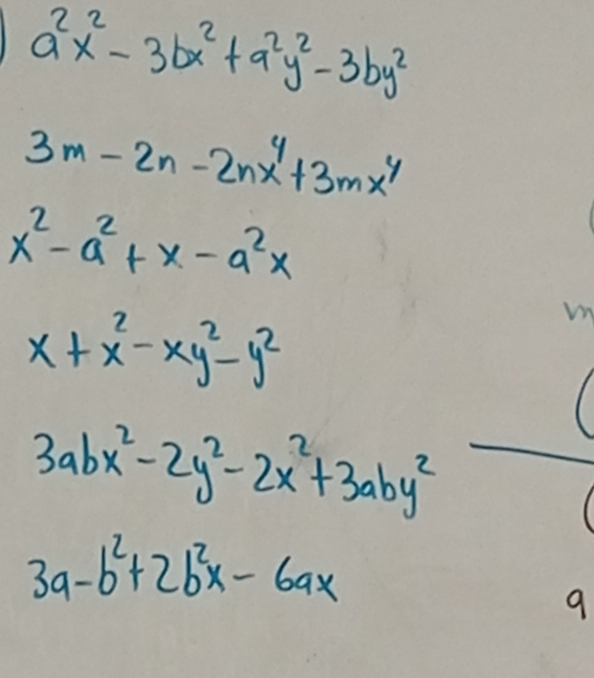 ) a²x² - 3bx² + a²y² - 3by²
3m - 2n - 2nx⁴ + 3mx⁴
x² - a² + x - a²x
x + x² - xy² - y²
3abx² - 2y² - 2x² + 3aby²
3a - b² + 2b²x - 6ax
m
(
(
9